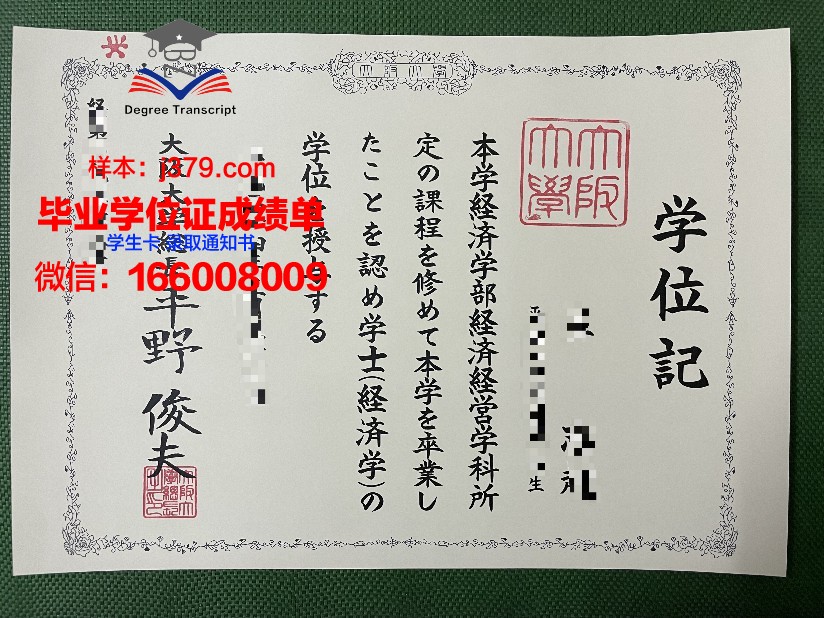 学位記
大阪大學
生
本学経済学部経済経営学科所
定の課程を修めて本学を卒業し
たことを認め学士(経済学)の
学位を授与する
大阪大学総長
平野俊夫
Degree Transcript
样本：j379.com
毕业学位证成绩单
学生卡 录取通知书
微信：166008009